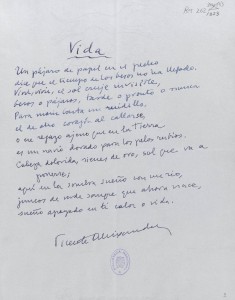 Vida
Un pájaro de papel en el pecho
dice que el tiempo de los besos no ha llegado.
Vivir, vivir, el sol cruje invisible,
besos o pájaros, tarde o pronto o nunca.
Para morir basta un ruidillo,
el de otro corazón al callarse,
o ese regazo ajeno que en la tierra
es un navío dorado para los pelos rubios.
Cabeza dolorida, sienes de oro, sol que va a
ponerse;
aquí en la sombra sueño con un río,
juncos de verde sangre que ahora nace,
sueño apoyado en ti calor o vida.
Vicente Aleixandre